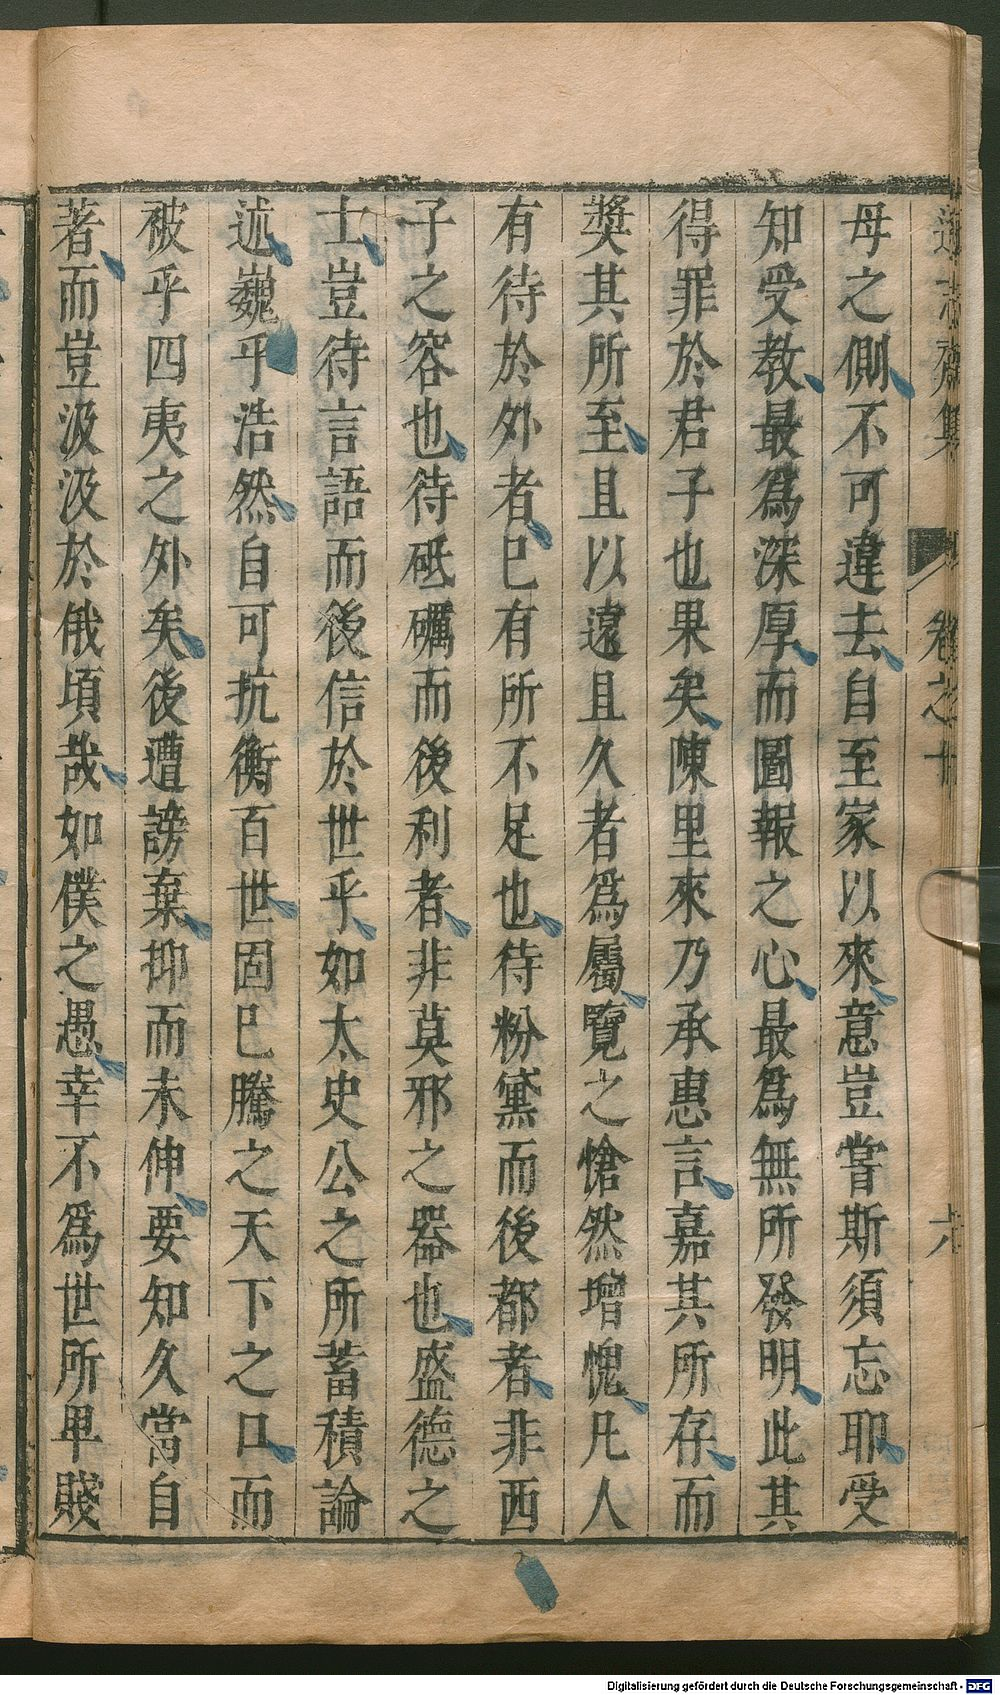 遜志齋集 卷之十 六
母之側不可違去自至家以來意豈嘗斯須忘耶受
知受教最爲深厚而圖報之心最爲無所發明此其
得罪於君子也果矣陳里來乃承惠言嘉其所存而
奬其所至且以遠且久者爲屬覽之愴然增愧凡人
有待於外者巳有所不足也待粉黛而後都者非西
子之容也待砥礪而後利者非莫邪之器也盛德之
士豈待言語而後信於世乎如太史公之所蓄積論
述巍乎浩然自可抗衡百世固巳騰之天下之口而
被乎四夷之外矣後遭謗棄抑而未伸要知久當自
著而豈汲汲於俄頃哉如僕之愚幸不爲世所卑賤
Digitalisierung gefördert durch die Deutsche Forschungsgemeinschaft - DFG